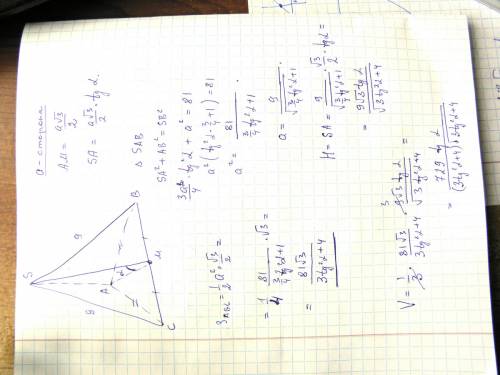 a - сторона
AM = a√3/2
SA = a√3/2 · tg α.
△ SAB
SA² + AB² = SB²
3a²/4 · tg²α + a² = 81
a² (tg²α · 3/4 + 1) = 81
a² = 81/(3/4 tg²α + 1) .
a = 9/√(3/4 tg²α + 1) .
H = SA = 9/√(3/4 tg²α + 1) · √3/2 · tg α =
= 9√3 tg α/√(3 tg²α + 4)
S
9
9
A
B
α
M
C
S ABC = 1/2 a² · √3/2 =
= 1/4 · 81/(3/4 tg²α + 1) · √3 =
= 81√3/(3 tg²α + 4)
V = 1/3 · 81√3/(3 tg²α + 4) · 9√3 tg α/√(3 tg²α + 4) =
3
= 729 tg α/(3 tg²α + 4)√(3 tg²α + 4)